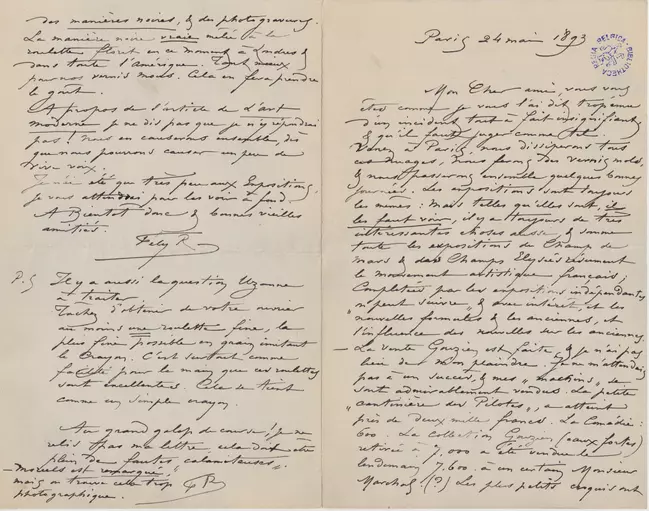 Paris 24 mai 1893
BELGICA BIBLIOTHECA REGIA
Mon Cher ami, vous vous
êtes comme je vous l'ai dit trop ému
d'un incident tout à fait insignifiant
& qu'il faut juger comme tel.
Venez à Paris, nous dissiperons tous
ces nuages, nous ferons des vernis mols,
& nous passerons ensemble quelques bonnes
journées. Les expositions sont toujours
les mêmes: Mais telles qu'elles sont, il
les faut voir, il y a toujours de très
intéressantes choses aussi, & somme
toute les expositions du Champ de
mars & des Champs Elysées résument
le mouvement artistique français;
Complétées par les expositions indépendantes
on peut suivre, & avec intérêt, et les
nouvelles formules & les anciennes, et
l'influence des nouvelles sur les anciennes.
– La vente Gouzien est faite, & je n'ai pas
lieu de m'en plaindre. Je ne m'attendais
pas à un succès, & mes „machins" se
sont admirablement vendus. La petite
„cantinière des Pilotes", a atteint
près de deux mille francs. La Comédie:
600. La Collection Gouzien (eaux fortes)
retirée à 7,000 a été vendue le
lendemain 7.600. à un certain Monsieur
Marchal (?) Les plus petits croquis ont
des manières noires, & des photogravures.
La manière noire vraie mêlée à la
roulette fleurit en ce moment à Londres &
dans toute l'Amérique. Tant mieux
pour nos vernis mous. Cela en fera prendre
le goût.
A propos de l'article de L'art
moderne je ne dis pas que je n'y répondrai
pas! nous en causerons ensemble, dès
que nous pourrons causer un peu de
vive voix.
Je n'ai été que très peu aux Expositions,
je vous attendrai pour les voir à fond.
A Bientôt donc & bonnes vieilles
amitiés.
Fély R
P.S Il y a aussi la question Uzanne
à traiter
Tachez d'obtenir de votre ouvrier
au moins une roulette fine, la
plus fine possible en grain imitant
le crayon. C'est surtout comme
facilité pour la main que ces roulettes
sont excellentes. Cela se tient
comme un simple crayon.
Au grand galop de course! Je ne
relis pas ma lettre cela doit être
plein de „fautes calamiteuses".
est remarqué,
mais on trouve cela trop
photographique. FR